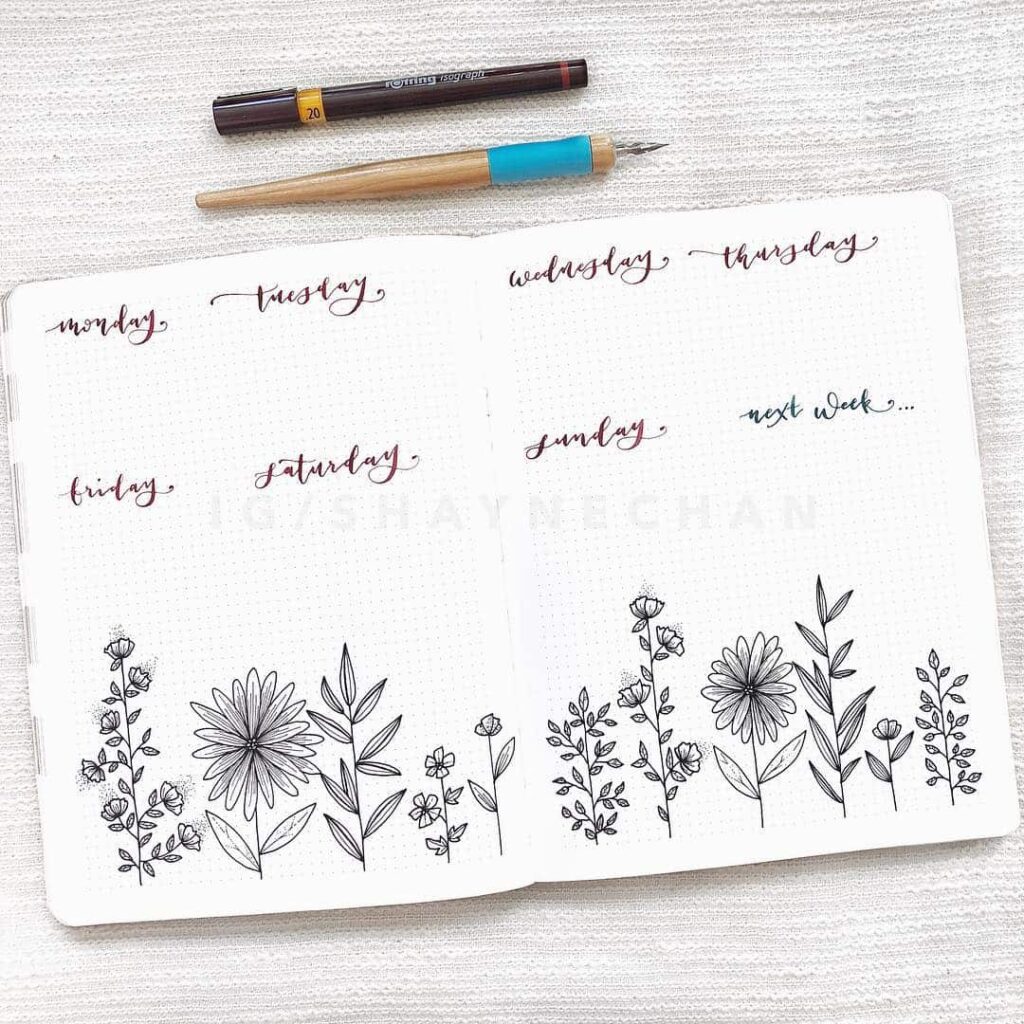 rotring isograph
.20
monday
tuesday
wednesday
thursday
friday
saturday
sunday
next week...
IG/SHAYNECHAN